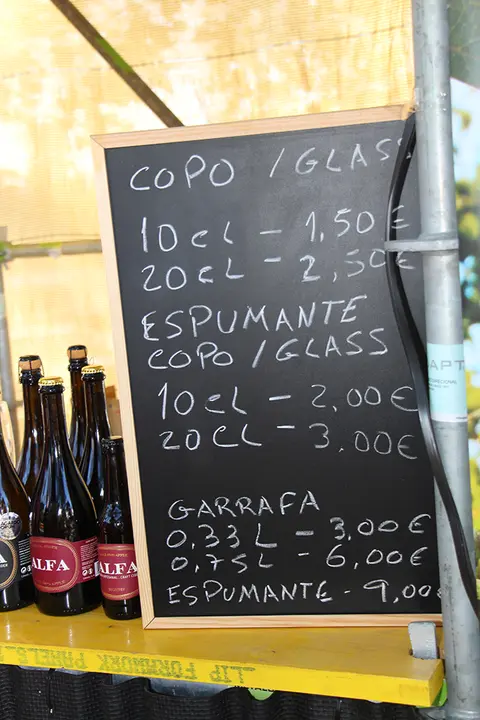 COPO / GLASS
10 cL - 1,50 €
20 cL - 2,50 €
ESPUMANTE
COPO / GLASS
10 cL - 2,00 €
20 CL - 3,00 €
GARRAFA
0,33 L - 3,00 €
0,75 L - 6,00 €
ESPUMANTE - 9,00 €
ALFA
ALFA
FORMWORK PANELS